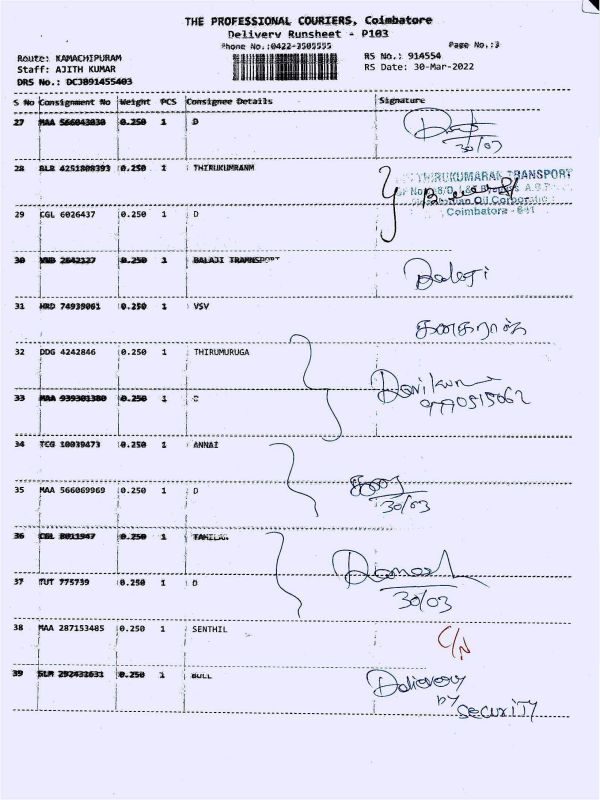 THE PROFESSIONAL COURIERS, Coimbatore
Delivery Runsheet - P103
Phone No.:0422-3505555
Page No.:3
Route: KAMACHIPURAM
RS No.: 914554
Staff: AJITH KUMAR
RS Date: 30-Mar-2022
DRS No.: DCJB91455403
S No Consignment No Weight PCS Consignee Details Signature
27 MAA 566043030 0.250 1 D
30/03
28 BLR 4251808393 0.250 1 THIRUKUMRANM
THIRUKUMARAN TRANSPORT
Indian Oil Corporatio
Coimbatore - 641
29 CGL 6026437 0.250 1 D
30 2642127 0.250 1 BALAJI TRAMNSPORT
Balaji
31 HRD 74939061 0.250 1 VSV
கனகராஜ்
32 DDG 4242846 0.250 1 THIRUMURUGA
33 MAA 939301380 0.250 1
34 TCG 10039473 0.250 1 ANNAI
35 MAA 566069969 0.250 1 D
30/03
36 CGL 8011947 0.250 1 TAMILAN
37 TUT 775739 0.250 1 D
30/03
38 MAA 287153485 0.250 1 SENTHIL
C/N
39 SLM 292431631 0.250 1 BULL
Delievery
by
security